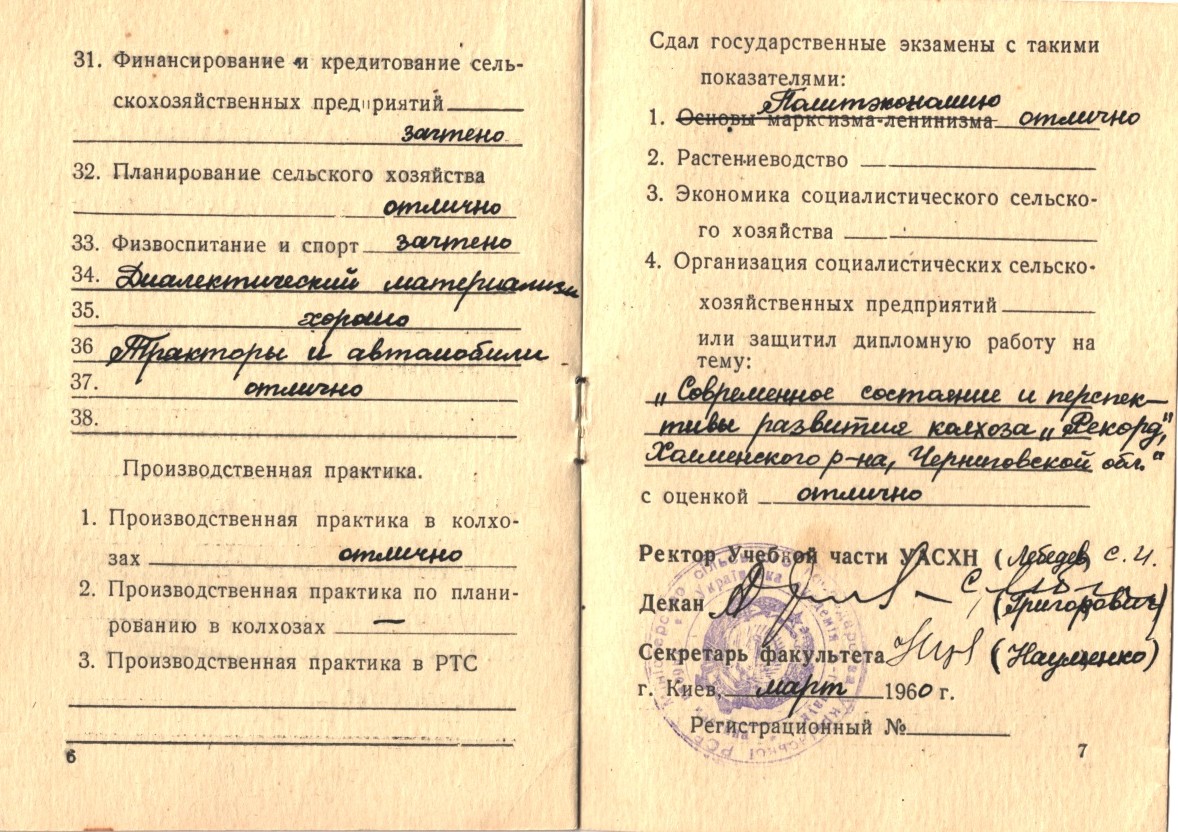 31. Финансирование и кредитование сель-
скохозяйственных предприятий
зачтено
32. Планирование сельского хозяйства
отлично
33. Физвоспитание и спорт зачтено
34. Диалектический материализм
35. хорошо
36 Тракторы и автомобили
37. отлично
38.
Производственная практика.
1. Производственная практика в колхо-
зах отлично
2. Производственная практика по плани-
рованию в колхозах —
3. Производственная практика в РТС
6
Сдал государственные экзамены с такими
показателями:
Политэкономию
1. Основы марксизма-ленинизма отлично
2. Растениеводство
3. Экономика социалистического сельско-
го хозяйства
4. Организация социалистических сельско-
хозяйственных предприятий
или защитил дипломную работу на
тему:
„Современное состояние и перспек-
тивы развития колхоза „Рекорд",
Холменского р-на, Черниговской обл."
с оценкой отлично
Ректор Учебной части УАСХН (Лебедев С. И.
Декан (Григорович)
Секретарь факультета (Наущенко)
г. Киев, март 1960 г.
Регистрационный №
7